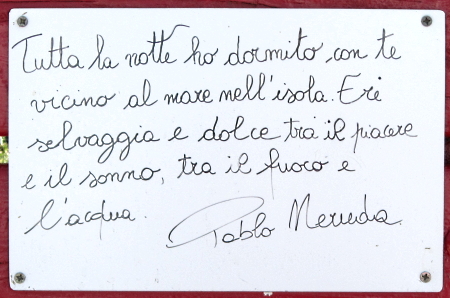 Tutta la notte ho dormito con te
vicino al mare nell'isola. Eri
selvaggia e dolce tra il piacere
e il sonno, tra il fuoco e
l'acqua.
Pablo Neruda